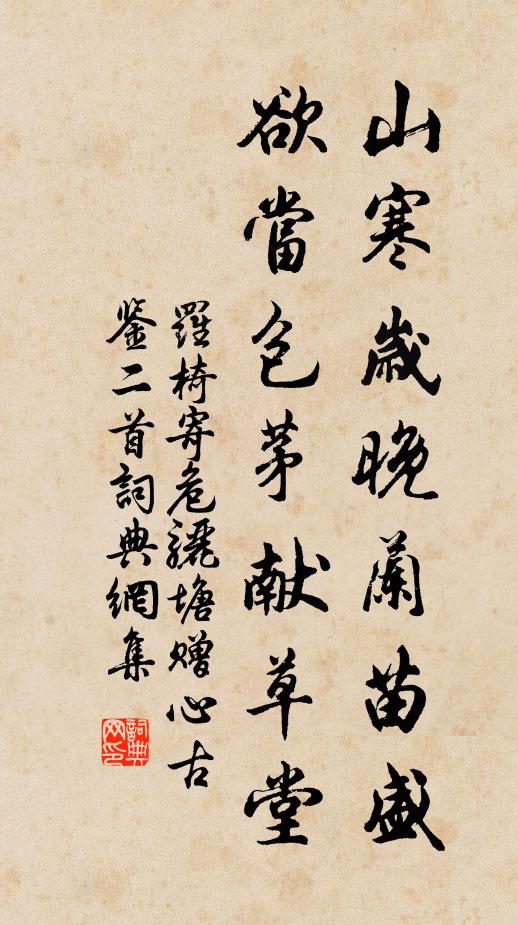 山寒歲晚蘭苗盛
欲當包茅献草堂
羅椅寄危驪塘贈心古
鉴二首詞典網集
詞典网印